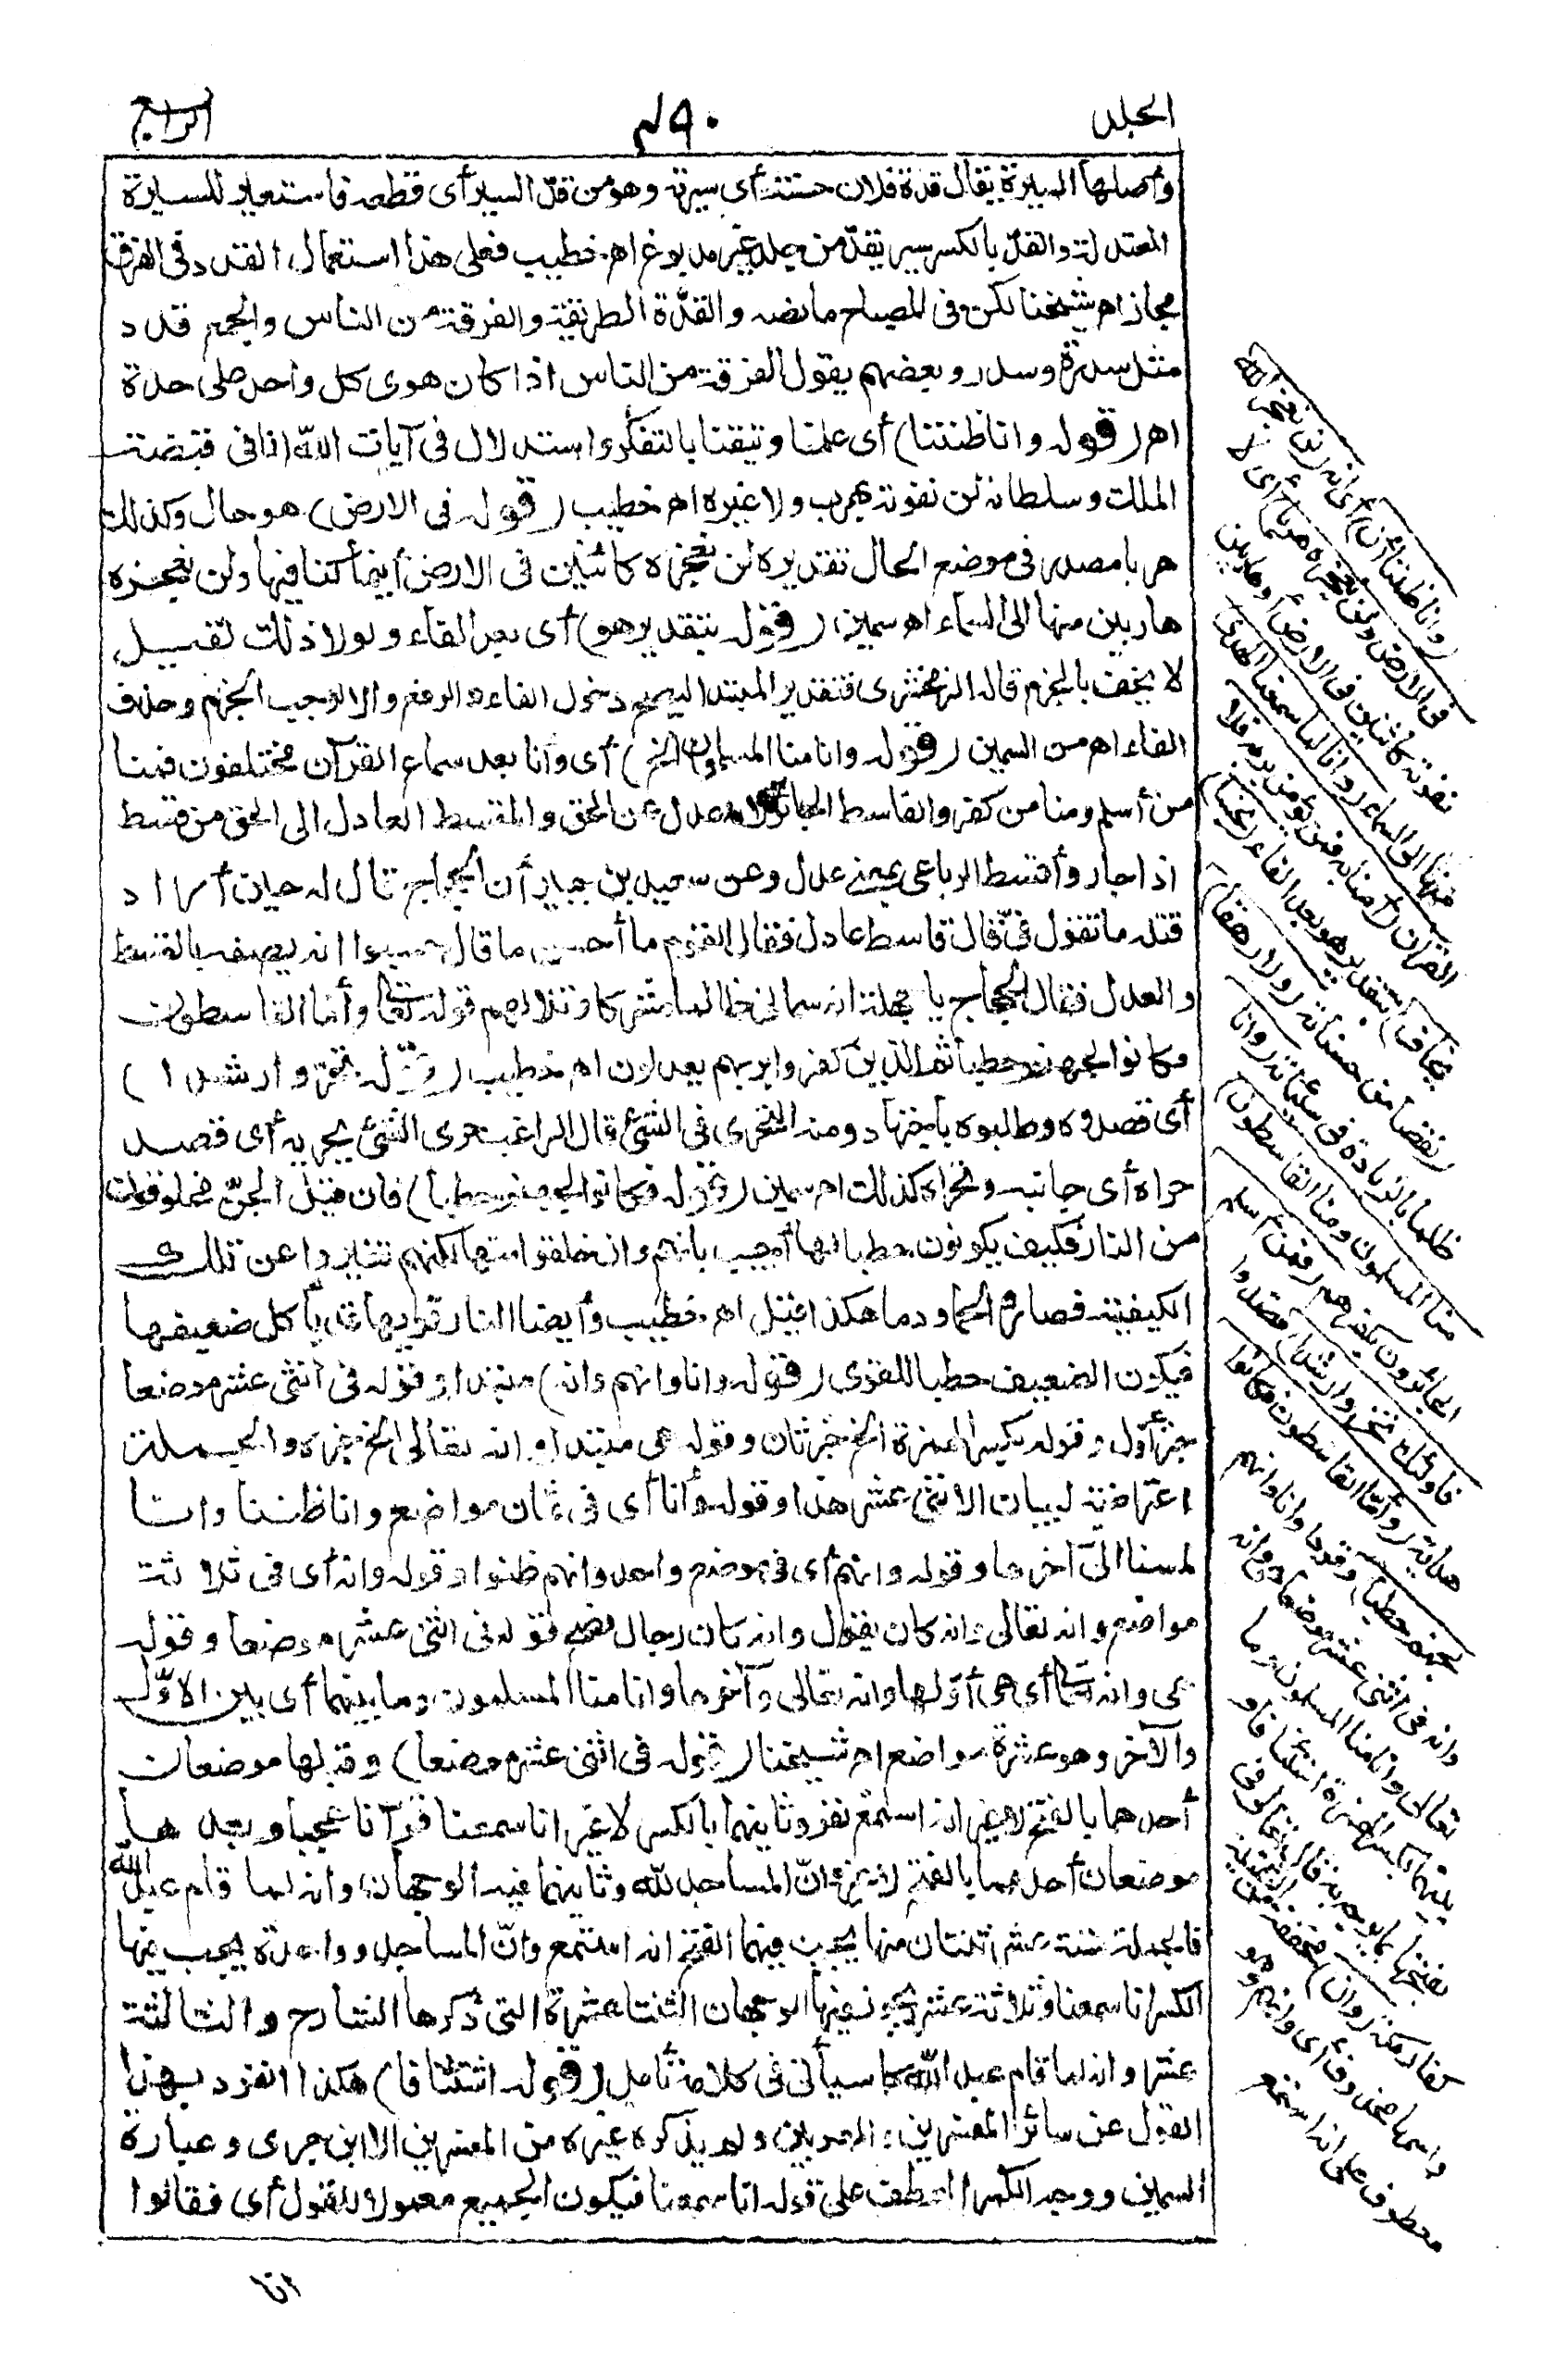 الجلد
٤٩٠
الرابع
وأصلها السيرة يقال قدة فلان حسنة أى سيرته وهو من قدّ السير أى قطعه فاستعير للسيرة
المعتدلة والقدّ بالكسر سير يقدّ من جلد غير مدبوغ اه خطيب فعلى هذا استعمال القدد فى الفرق
مجاز اه شيخنا لكن فى المصباح ما نصه والقدّة الطريقة والفرقة من الناس والجمع قدد
مثل سدرة وسدر وبعضهم يقول الفرقة من الناس اذا كان هوى كل واحد على حدة
اه (قوله وانا ظننا) أى علمنا وتيقنا بالتفكر واستدلال فى آيات الله انا فى قبضة
الملك وسلطانه لن نفوته بهرب ولا غيره اه خطيب (قوله فى الارض) هو حال وكذلك
هربا مصدر فى موضع الحال تقديره لن نعجزه كائنين فى الارض أينما كنا فيها ولن نعجزه
هاربين منها الى السماء اه سمين (قوله بتقدير هو) أى بعد الفاء ولولا ذلك لقيل
لا يخف بالجزم قاله الزمخشرى فتقدير المبتدا ليصح دخول الفاء والرفع والا لوجب الجزم وحذف
الفاء اه من السمين (قوله وانا منا المسلمون الخ) أى وانا بعد سماع القرآن مختلفون فمنا
من أسلم ومنا من كفر والقاسط الجائر لانه عدل عن الحق والمقسط العادل الى الحق من قسط
اذا جار وأقسط الرباعى بمعنى عدل وعن سعيد بن جبير أن الحجاج قال له حين أراد
قتله ما تقول فىّ قال قاسط عادل فقال القوم ما أحسن ما قال حسبوا انه يصفه بالقسط
والعدل فقال الحجاج يا جهلة انه سمانى ظالما مشركا وتلا لهم قوله تعالى وأما القاسطون
فكانوا لجهنم حطبا ثم الذين كفروا بربهم يعدلون اه خطيب (قوله تحروا رشدا)
أى قصدوه وطلبوه باجتهاد ومنه التحرى فى الشئ قال الراغب حرى الشئ يحريه أى قصد
حراه أى جانبه وتحراه كذلك اه سمين (قوله فكانوا لجهنم حطبا) فان قيل الجنّ مخلوقون
من النار فكيف يكونون حطبا لها أجيب بانهم وان خلقوا منها لكنهم تغيروا عن تلك
الكيفية فصاروا لحما ودما هكذا قيل اه خطيب وأيضا النار قويها قد يأكل ضعيفها
فيكون الضعيف حطبا للقوى (قوله وانا وانهم وانه) مبتدا وقوله فى اثنى عشر موضعا
خبر أول وقوله بكسر الهمزة الخ خبر ثان وقوله هى مبتدا وانه تعالى الخ خبره والجملة
اعتراضية لبيان الاثنى عشر هذا وقوله وأنا أى فى ثمان مواضع وانا ظننا وانا
لمسنا الى آخرها وقوله وانهم أى فى موضع واحد وانهم ظنوا وقوله وانه أى فى ثلاثة
مواضع وانه تعالى وانه كان يقول وانه كان رجال فقوله فى اثنى عشر موضعا وقوله
هى وانه تعالى أى هى أولها وانه تعالى وآخرها وانا منا المسلمون وما بينهما أى بين الاوّل
والآخر وهو عشرة مواضع اه شيخنا (قوله فى اثنى عشر موضعا) وقبلها موضعان
أحدهما بالفتح لا غير انه استمع نفر وثانيهما بالكسر لا غير انا سمعنا قرآنا عجبا وبعدها
موضعان أحدهما بالفتح لا غير وانّ المساجد لله وثانيهما فيه الوجهان وانه لما قام عبد الله
فالجملة ستة عشر ثنتان منها يجب فيهما الفتح انه استمع وانّ المساجد وواحدة يجب فيها
الكسر انا سمعنا وثلاثة عشر يجوز فيها الوجهان الثنتا عشرة التى ذكرها الشارح والثالثة
عشر وانه لما قام عبد الله كما سيأتى فى كلامه تأمل (قوله استئنافا) هكذا انفرد بهذا
القول عن سائر المفسرين والمعربين ولم يذكره غيره من المفسرين الا ابن جرى وعبارة
السمين ووجه الكسر العطف على قوله انا سمعنا فيكون الجميع معمولا للقول أى فقالوا
انا
(وانا ظننا أن) أى انه (لن نعجز الله
فى الارض ولن نعجزه هربا) أى لا
نفوته كائنين فى الارض أو هاربين
منها الى السماء (وانا لما سمعنا الهدى)
القرآن (آمنا به فمن يؤمن بربه فلا
يخاف) بتقدير هو بعد الفاء (بخسا)
نقصا من حسناته (ولا رهقا)
ظلما بالزيادة فى سيئاته (وانا
منا المسلمون ومنا القاسطون)
الجائرون بكفرهم (فمن أسلم
فأولئك تحروا رشدا) قصدوا
هداية (وأما القاسطون فكانوا
لجهنم حطبا) وقودا وانا وانهم
وانه فى اثنى عشر موضعا هى وانه
تعالى وانا منا المسلمون وما
بينهما بكسر الهمزة استئنافا و
بفتحها بما يوجه به قال تعالى فى
كفار مكة (وان) مخففة من الثقيلة
واسمها محذوف أى وانهم وهو
معطوف على انه استمع